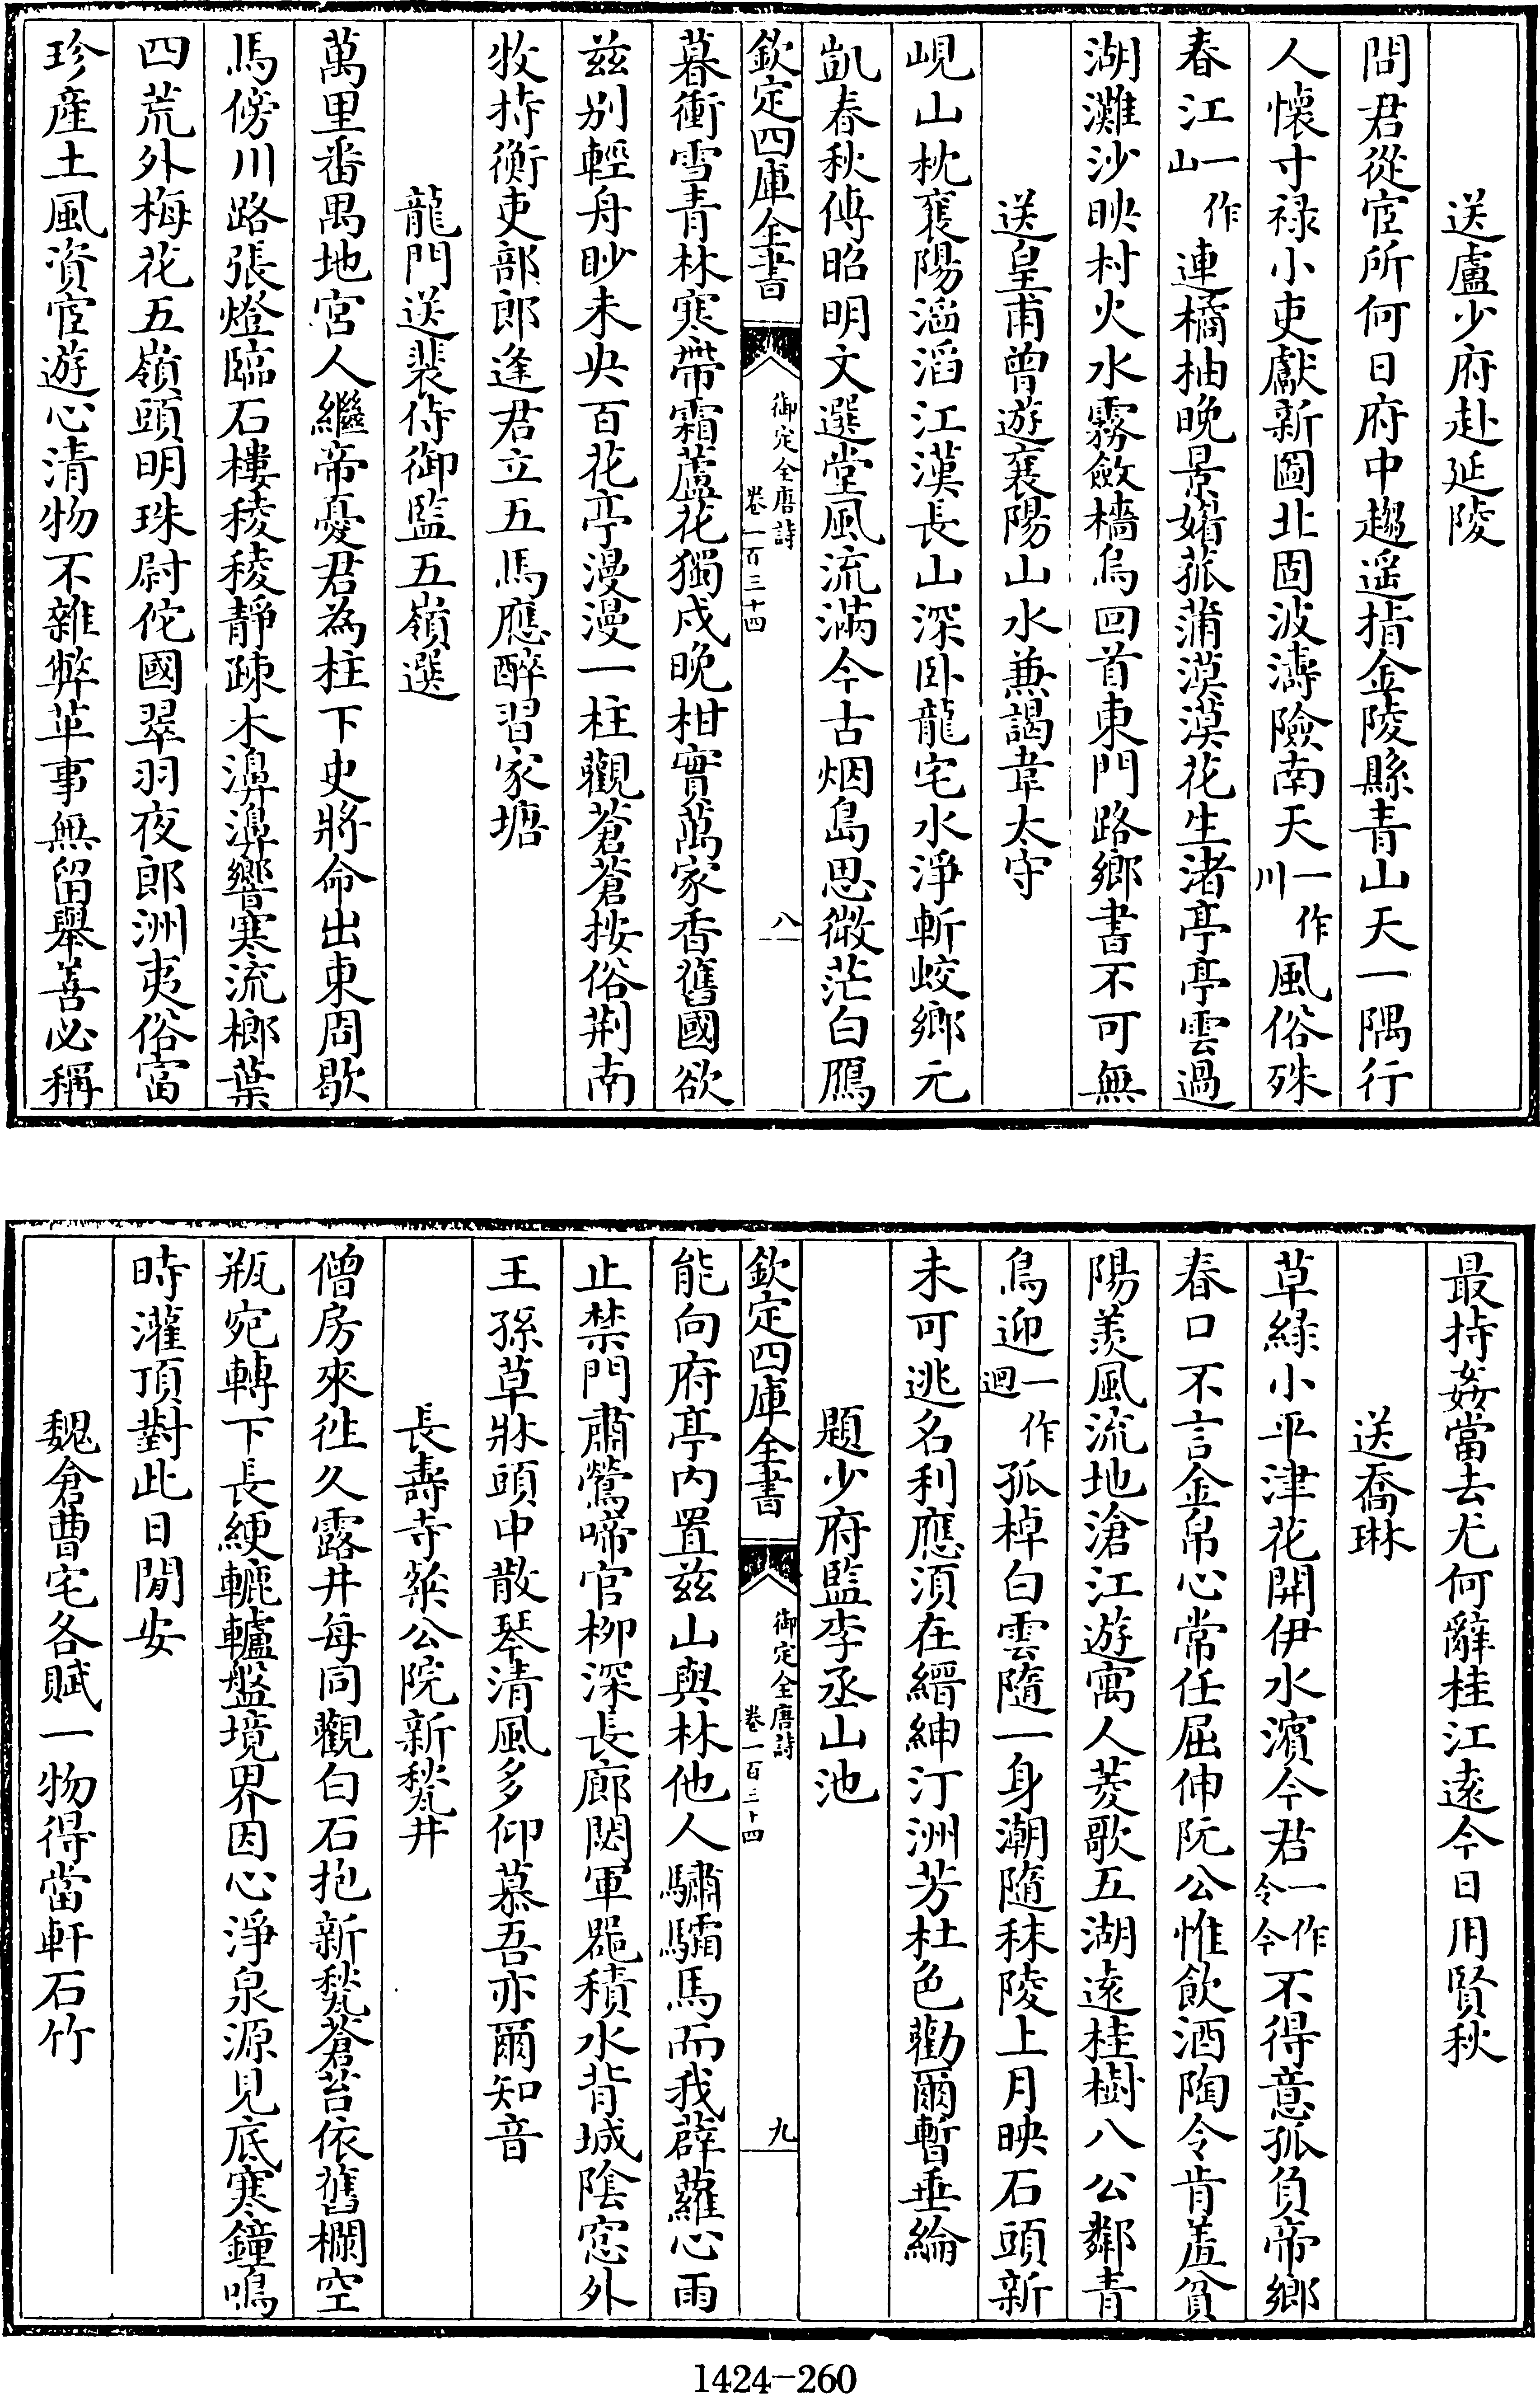 送盧少府赴延陵
問君從宦所何日府中趨遥指金陵縣青山天一隅行
人懷寸禄小吏獻新圖北固波濤險南天一作川風俗殊
春江一作山連橘柚晚景媚菰蒲漠漠花生渚亭亭雲過
湖灘沙映村火水霧斂檣烏回首東門路鄉書不可無
送皇甫曾遊襄陽山水兼謁韋太守
峴山枕襄陽滔滔江漢長山深卧龍宅水淨斬蛟鄉元
凱春秋傳昭明文選堂風流滿今古烟島思微茫白鴈
欽定四庫全書
御定全唐詩
卷一百三十四
八
暮衝雪青林寒帶霜蘆花獨戍晚柑實萬家香舊國欲
兹别輕舟眇未央百花亭漫漫一柱觀蒼蒼按俗荆南
牧持衡吏部郎逢君立五馬應醉習家塘
龍門送裴侍御監五嶺選
萬里番禺地官人繼帝憂君為柱下史將命出東周歇
馬傍川路張燈臨石樓稜稜靜疎木濞濞響寒流榔葉
四荒外梅花五嶺頭明珠尉佗國翠羽夜郎洲夷俗富
珍産土風資宦遊心清物不雜弊革事無留舉善必稱
最持姦當去尤何辭桂江遠今日用賢秋
送喬琳
草綠小平津花開伊水濱今君一作令今不得意孤負帝鄉
春口不言金帛心常任屈伸阮公惟飲酒陶令肯羞貧
陽羨風流地滄江遊寓人菱歌五湖遠桂樹八公鄰青
鳥迎一作迴孤棹白雲隨一身潮隨秣陵上月映石頭新
未可逃名利應須在縉紳汀洲芳杜色勸爾暫垂綸
題少府監李丞山池
欽定四庫全書
御定全唐詩
卷一百三十四
九
能向府亭内置兹山與林他人驌驦馬而我薜蘿心雨
止禁門肅鶯啼官柳深長廊閟軍器積水背城陰窓外
王孫草牀頭中散琴清風多仰慕吾亦爾知音
長壽寺粲公院新甃井
僧房來往久露井每同觀白石抱新甃蒼苔依舊欄空
瓶宛轉下長綆轆轤盤境界因心淨泉源見底寒鐘鳴
時灌頂對此日閒安
魏倉曹宅各賦一物得當軒石竹
1424-260